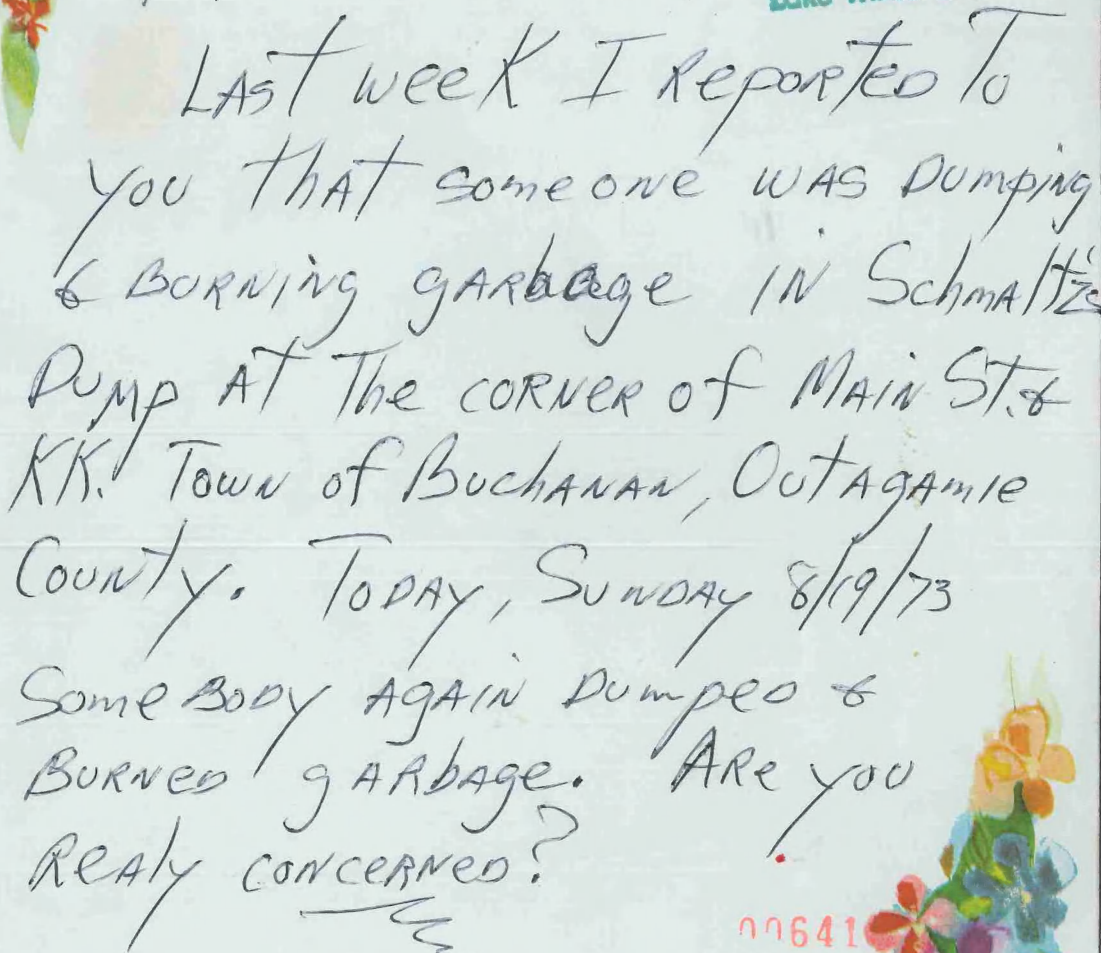 Last week I Reported To
you that someone was Dumping
& Burning garbage in Schmaltz's
Dump at The corner of Main St. &
KK. Town of Buchanan, Outagamie
County. Today, Sunday 8/19/73
SomeBody again Dumped &
Burned garbage. Are you
Realy concerned?
00641